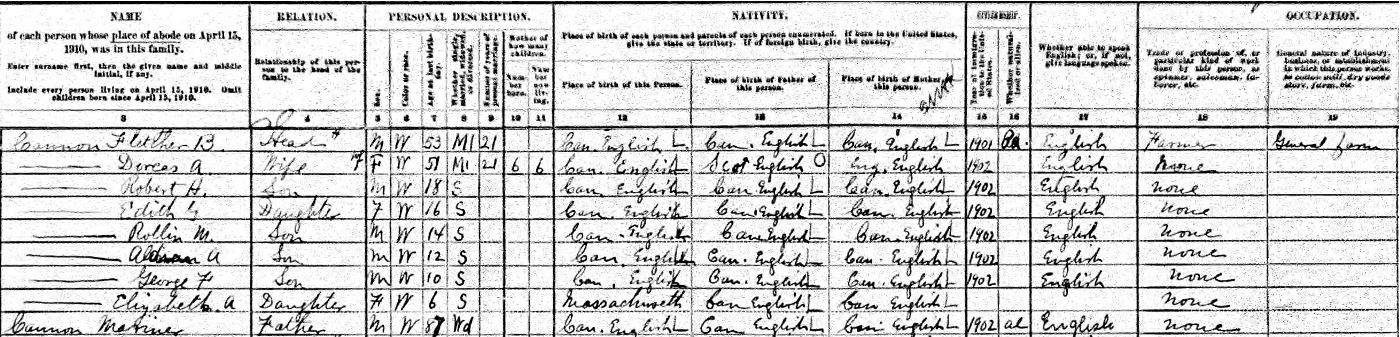 NAME RELATION. PERSONAL DESCRIPTION. NATIVITY. CITIZENSHIP. OCCUPATION.
of each person whose place of abode on April 15, 1910, was in this family.
Enter surname first, then the given name and middle initial, if any.
Include every person living on April 15, 1910. Omit children born since April 15, 1910.
Relationship of this person to the head of the family.
Sex.
Color or race.
Age at last birthday.
Whether single, married, widowed, or divorced.
Number of years of present marriage.
Mother of how many children.
Number born.
Number now living.
Place of birth of each person and parents of each person enumerated. If born in the United States, give the state or territory. If of foreign birth, give the country.
Place of birth of this Person.
Place of birth of Father of this person.
Place of birth of Mother of this person.
Year of immigration to the United States.
Whether naturalized or alien.
Whether able to speak English; or, if not, give language spoken.
Trade or profession of, or particular kind of work done by this person, as spinner, salesman, laborer, etc.
General nature of industry, business, or establishment in which this person works, as cotton mill, dry goods store, farm, etc.
3 4 5 6 7 8 9 10 11 12 13 14 15 16 17 18 19
Cannon Fletcher B. Head M W 53 M1 21 Can. English Can. English Can. English 1901 Pa English Farmer General farm
Dorcas A Wife F W 51 M1 21 6 6 Can. English Scot English Eng. English 1902 English None
Robert H. Son M W 18 S Can English Can English Can. English 1902 English none
Edith G Daughter F W 16 S Can. English Can English Can. English 1902 English none
Rollin M. Son M W 14 S Can. English Can. English Can. English 1902 English none
A Son M W 12 S Can. English Can. English Can. English 1902 English none
George F Son M W 10 S Can. English Can. English Can. English 1902 English none
Elizabeth A Daughter F W 6 S Massachusetts Can English Can English none
Cannon Father M W 87 Wd Can. English Can English Can English 1902 al English none